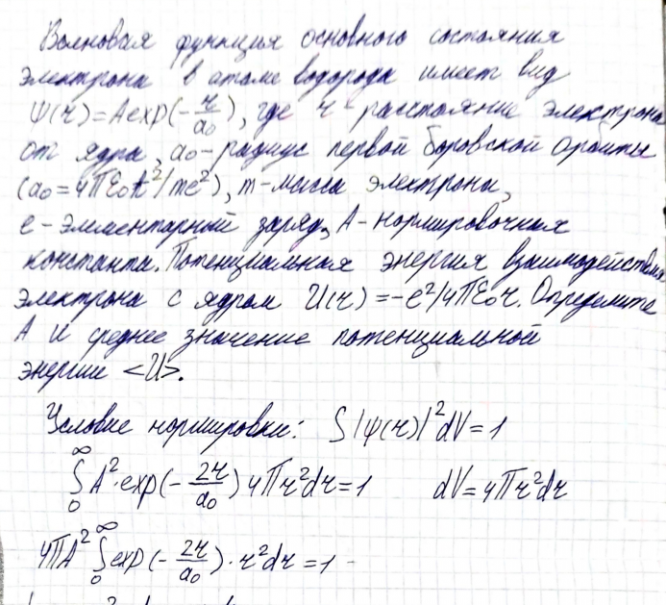 Волновая функция основного состояния
электрона в атоме водорода имеет вид
Ψ(r)=Aexp(-r/a₀), где r - расстояние электрона
от ядра, a₀-радиус первой боровской орбиты
(a₀=4πε₀ħ²/me²), m-масса электрона,
e-элементарный заряд, A-нормировочная
константа. Потенциальная энергия взаимодействия
электрона с ядром U(r)=-e²/4πε₀r. Определите
A и среднее значение потенциальной
энергии <U>.
Условие нормировки: ∫|Ψ(r)|²dV=1
∫₀^∞ A²·exp(-2r/a₀)4πr²dr=1 dV=4πr²dr
4πA² ∫₀^∞ exp(-2r/a₀)·r²dr=1